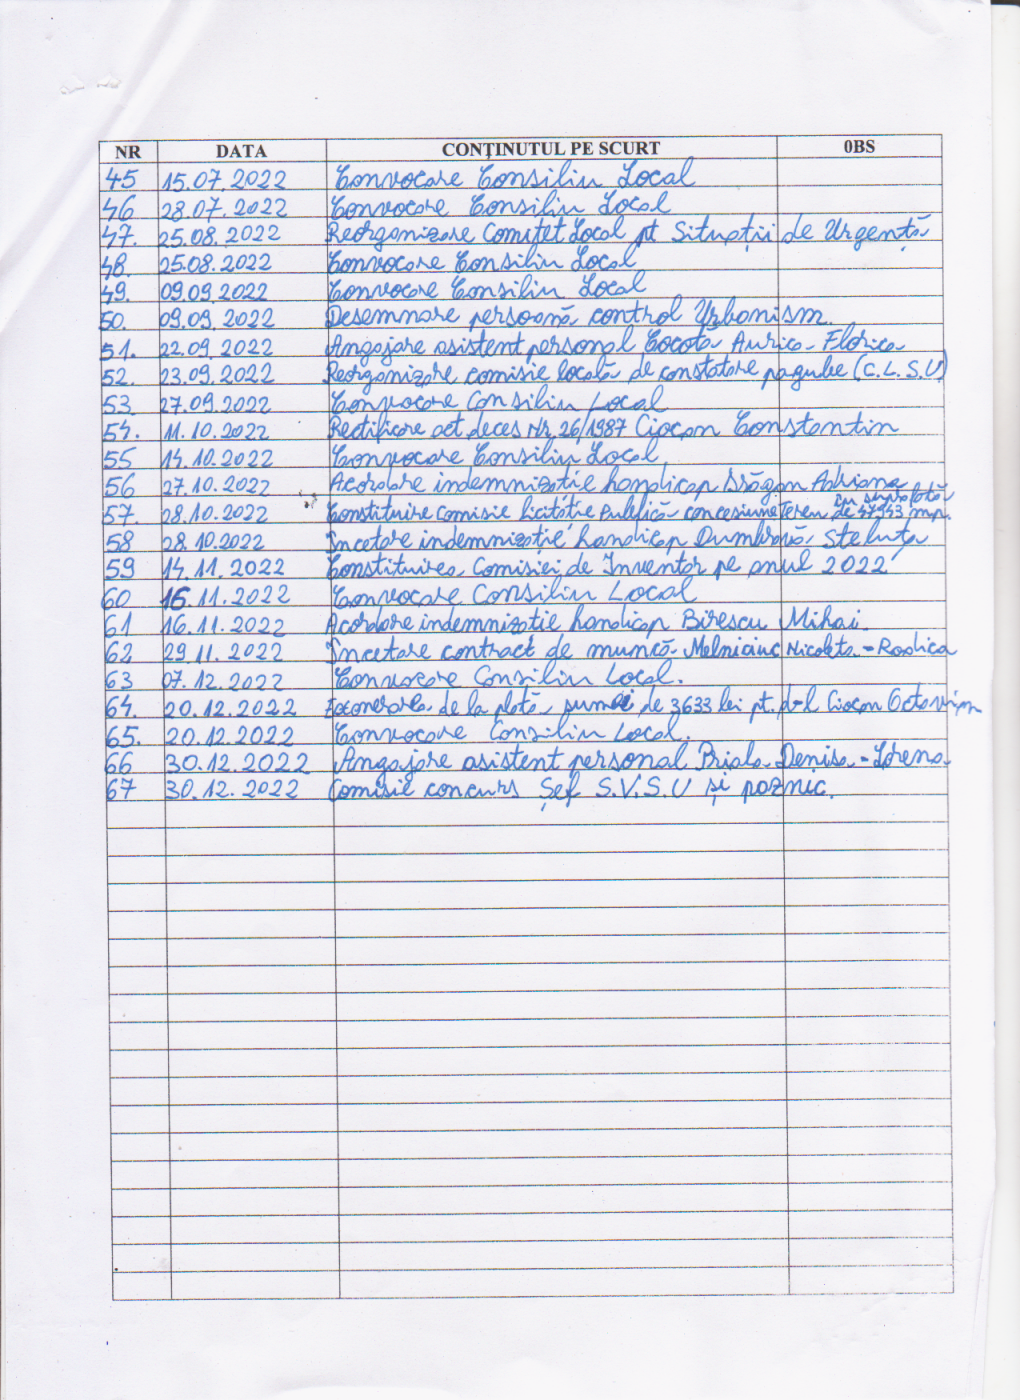 NR DATA CONȚINUTUL PE SCURT 0BS
45 15.07.2022 Convocare Consiliu Local
46 28.07.2022 Convocare Consiliu Local
47. 25.08.2022 Reorganizare Comitet Local pt Situații de Urgență
48. 25.08.2022 Convocare Consiliu Local
49. 09.09.2022 Convocare Consiliu Local
50. 09.09.2022 Desemnare persoană control Urbanism.
51. 22.09.2022 Angajare asistent personal Cocota Aurica Florica
52. 23.09.2022 Reorganizare comisie locală de constatare pagube (C.L.S.U)
53 27.09.2022 Convocare Consiliu Local
54. 11.10.2022 Rectificare act deces Nr. 26/1987 Ciocan Constantin
55 14.10.2022 Convocare Consiliu Local
56 27.10.2022 Acordare indemnizatie handicap Drăgan Adriana
57. 28.10.2022 Constituire comisie licitatie Publică concesiune Teren în suprafată de 47943 mp.
58 28.10.2022 Încetare indemnizație handicap Dumbravă Steluța
59 14.11.2022 Constituirea Comisiei de Inventar pe anul 2022
60 16.11.2022 Convocare Consiliu Local
61 16.11.2022 Acordare indemnizatie handicap Birescu Mihai.
62 29.11.2022 Încetare contract de muncă Melniciuc Nicoleta - Rodica
63 07.12.2022 Convocare Consiliu Local.
64. 20.12.2022 Exonerarea de la plată sumei de 3633 lei pt. d-l Ciocan Octavian
65. 20.12.2022 Convocare Consiliu Local.
66 30.12.2022 Angajare asistent personal Priala Denisa - Lorena
67 30.12.2022 Comisie concurs Șef S.V.S.U și paznic.